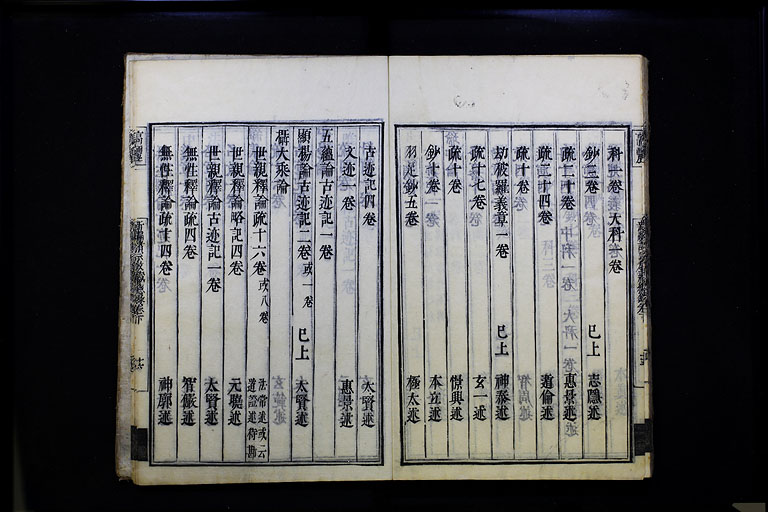 科一卷 大科一卷
鈔三卷 已上 志隱述
疏二十卷 惠景述
疏二十四卷 道倫述
疏十卷 智周述
劫波羅義章一卷 已上 神泰述
疏十七卷 玄一述
疏十卷 憬興述
鈔十卷 本立述
羽足鈔五卷 極太述
古迹記四卷 太賢述
文迹一卷 惠景述
五蘊論古迹記一卷
顯揚論古迹記二卷 或一卷 已上 太賢述
攝大乘論
世親釋論疏十六卷 或八卷 法常述或云道證述待勘
世親釋論略記四卷 元曉述
世親釋論古迹記一卷 太賢述
無性釋論疏四卷 智儼述
無性釋論疏十四卷 神廓述